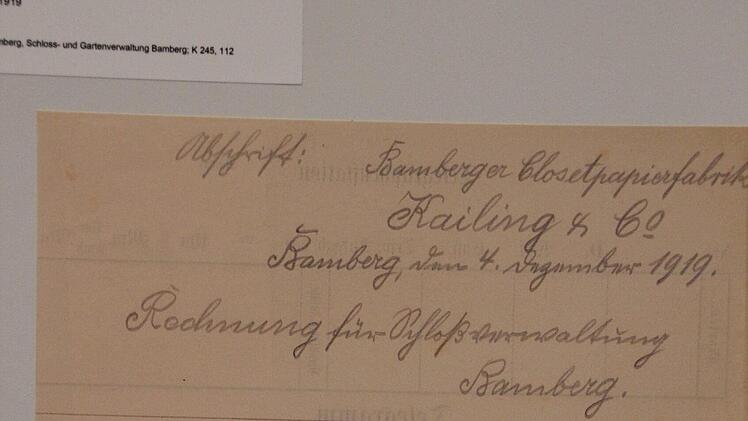 1919
mberg, Schloss- und Gartenverwaltung Bamberg; K 245, 112
Abschrift: Bamberger Closetpapierfabrik
Kailing & Co
Bamberg, den 4. Dezember 1919.
Rechnung für Schloßverwaltung
Bamberg.
Telegramm